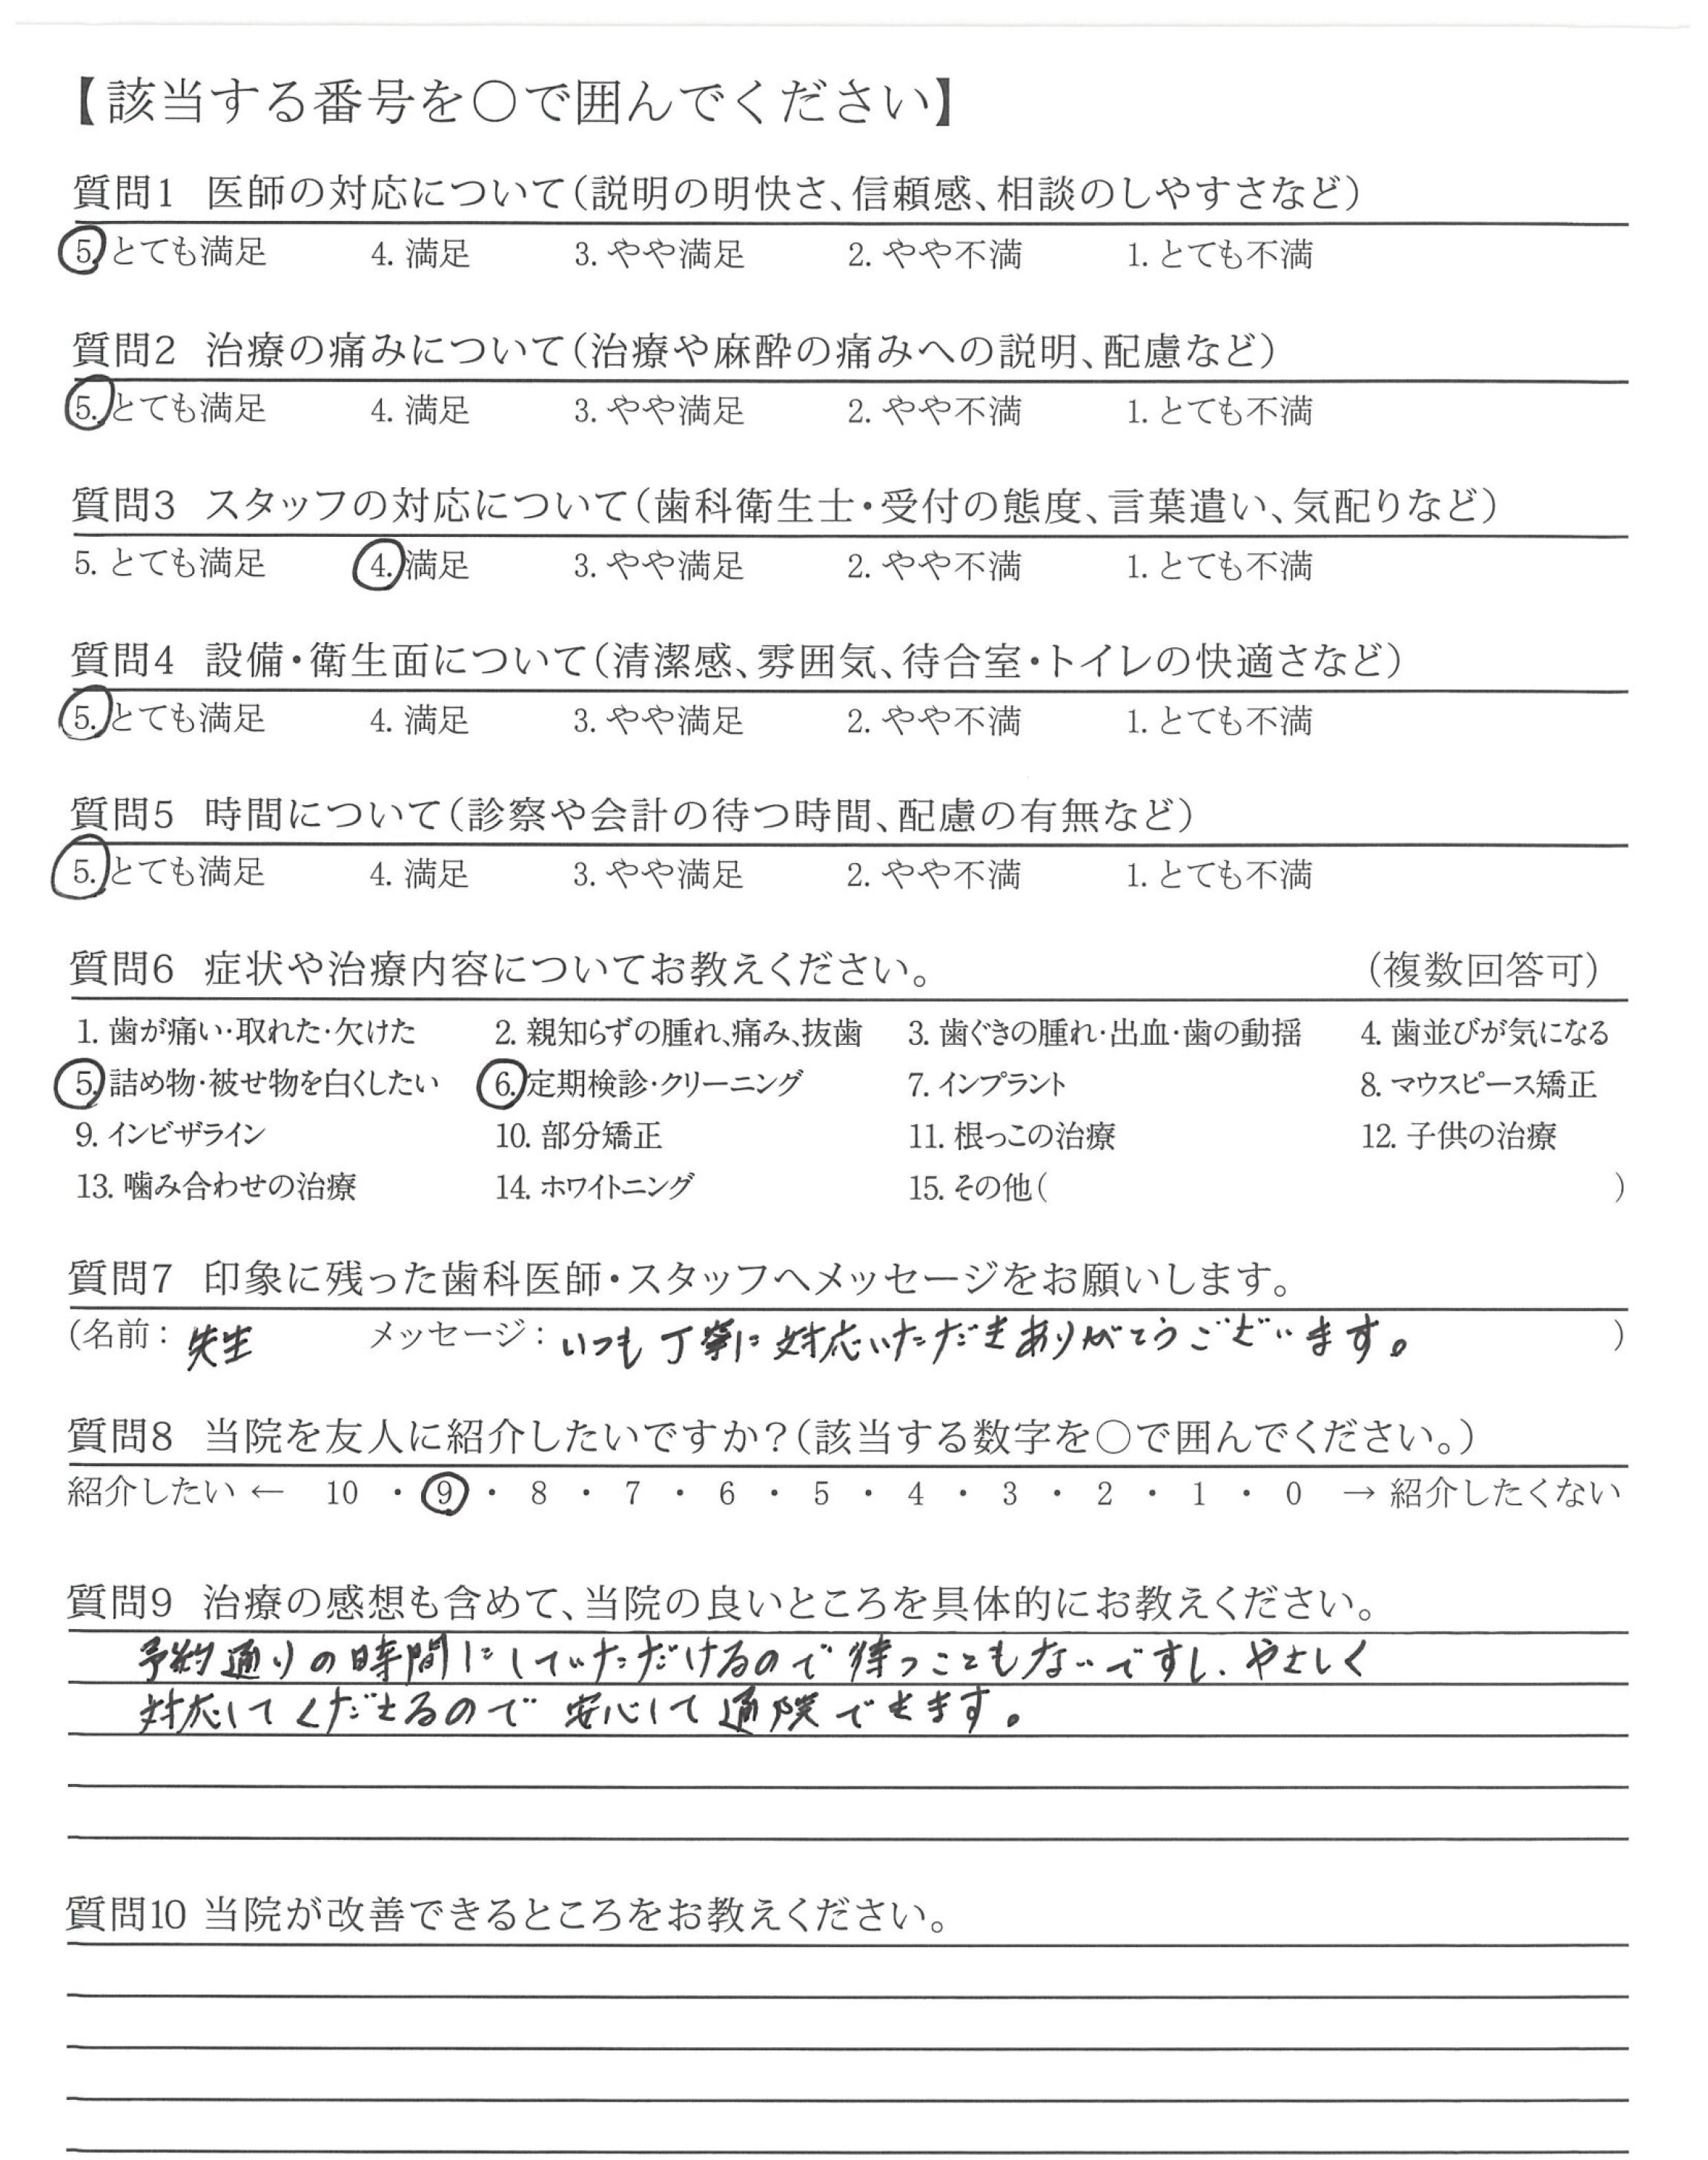 【該当する番号を〇で囲んでください】
質問1 医師の対応について（説明の明快さ、信頼感、相談のしやすさなど）
5. とても満足 4. 満足 3. やや満足 2. やや不満 1. とても不満
質問2 治療の痛みについて（治療や麻酔の痛みへの説明、配慮など）
5. とても満足 4. 満足 3. やや満足 2. やや不満 1. とても不満
質問3 スタッフの対応について（歯科衛生士・受付の態度、言葉遣い、気配りなど）
5. とても満足 4. 満足 3. やや満足 2. やや不満 1. とても不満
質問4 設備・衛生面について（清潔感、雰囲気、待合室・トイレの快適さなど）
5. とても満足 4. 満足 3. やや満足 2. やや不満 1. とても不満
質問5 時間について（診察や会計の待つ時間、配慮の有無など）
5. とても満足 4. 満足 3. やや満足 2. やや不満 1. とても不満
質問6 症状や治療内容についてお教えください。 （複数回答可）
1. 歯が痛い・取れた・欠けた 2. 親知らずの腫れ、痛み、抜歯 3. 歯ぐきの腫れ・出血・歯の動揺 4. 歯並びが気になる
5. 詰め物・被せ物を白くしたい 6. 定期検診・クリーニング 7. インプラント 8. マウスピース矯正
9. インビザライン 10. 部分矯正 11. 根っこの治療 12. 子供の治療
13. 噛み合わせの治療 14. ホワイトニング 15. その他（ ）
質問7 印象に残った歯科医師・スタッフへメッセージをお願いします。
（名前：先生 メッセージ：いつも丁寧に対応いただきありがとうございます。）
質問8 当院を友人に紹介したいですか？（該当する数字を〇で囲んでください。）
紹介したい ← 10 ・ 9 ・ 8 ・ 7 ・ 6 ・ 5 ・ 4 ・ 3 ・ 2 ・ 1 ・ 0 → 紹介したくない
質問9 治療の感想も含めて、当院の良いところを具体的にお教えください。
予約通りの時間にしていただけるので待つこともないですし、やさしく
対応してくださるので安心して通院できます。
質問10 当院が改善できるところをお教えください。